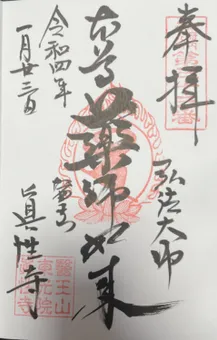 奉拝
弘法大師
本尊薬師如来
眞性寺
令和四年
一月廿三日
醫王山
東光院
眞性寺